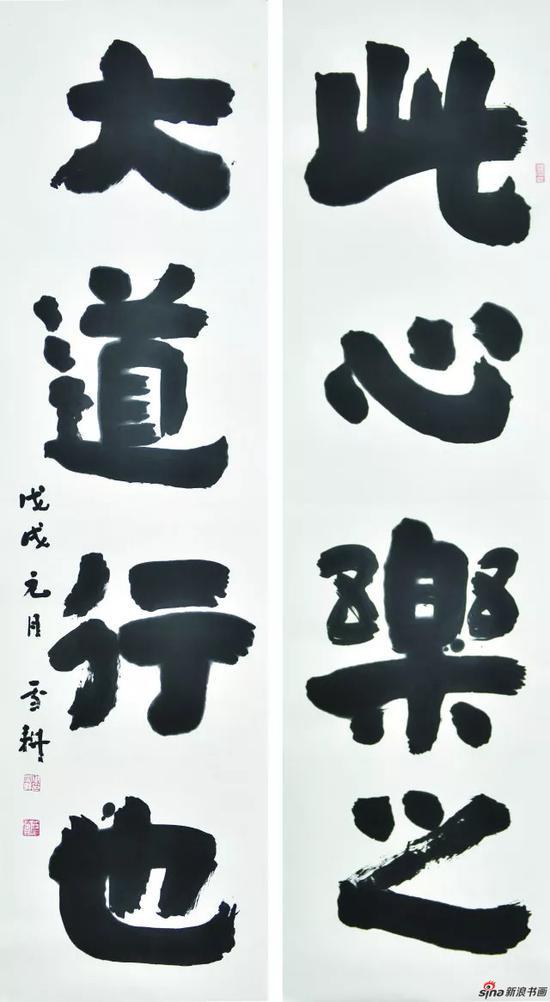 此心樂之
大道行也
戊戌元月 雪耕
sina新浪书画